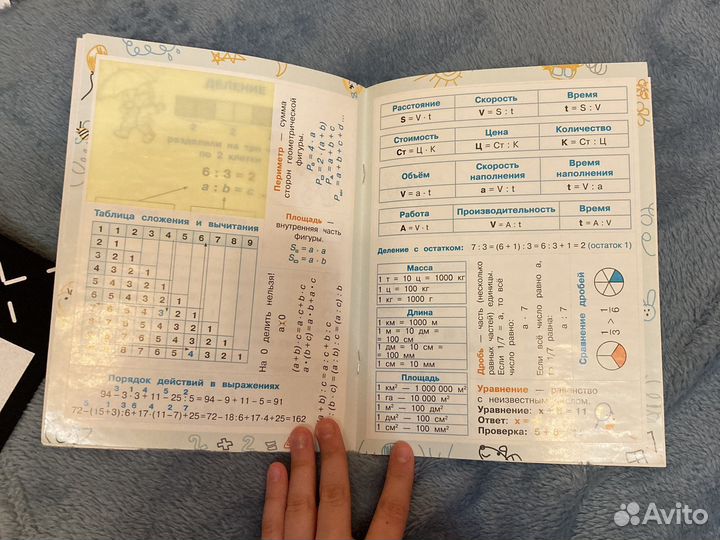 ДЕЛЕНИЕ
2 2
разделили на три
по 2 клетки
6 : 3 = 2
a : b = c
Периметр — сумма
сторон геометрической
фигуры.
P = 4 · a
P = 2 · (a + b)
P = a + b + c
P = a + b + c + d ...
Таблица сложения и вычитания
1 1 2 3 4 5 6 7 8 9
2 1
3 2 1
4 3 2 1
5 4 3 2 1
6 5 4 3 2 1
7 6 5 4 3 2 1
8 7 6 5 4 3 2 1
9 8 7 6 5 4 3 2 1
Площадь —
внутренняя часть
фигуры.
S = a · a
S = a · b
На 0 делить нельзя!
a:0
(a + b) · c = a · c + b · c
a · (b · c) = a · b · c
(a + b) : c = a : c + b : c
(b · c) = (a : b) : c = (a : c) : b
Порядок действий в выражениях
3 1 4 5 2
94 − 3 · 3 + 11 − 25 : 5 = 94 − 9 + 11 − 5 = 91
5 1 3 6 4 2 7
72−(15+3):6+17·(11−7)+25=72−18:6+17·4+25=162
Расстояние Скорость Время
S = V · t V = S : t t = S : V
Стоимость Цена Количество
Ст = Ц · К Ц = Ст : К К = Ст : Ц
Объём Скорость наполнения Время наполнения
V = a · t a = V : t t = V : a
Работа Производительность Время
A = V · t V = A : t t = A : V
Деление с остатком: 7 : 3 = (6 + 1) : 3 = 6 : 3 + 1 = 2 (остаток 1)
Масса
1 т = 10 ц = 1000 кг
1 ц = 100 кг
1 кг = 1000 г
Длина
1 км = 1000 м
1 м = 10 дм =
= 100 см
1 дм = 10 см =
= 100 мм
1 см = 10 мм
Площадь
1 км² — 1 000 000 м²
1 га — 10 000 м²
1 м² — 100 дм²
1 дм² — 100 см²
1 см² — 100 мм²
Дробь — часть (несколько
равных частей) единицы.
Если 1/7 = a, то всё
число равно:
a · 7
Если всё число равно a,
то 1/7 равна:
a : 7
Сравнение дробей
1/3 > 1/6
Уравнение — равенство
с неизвестным числом.
Уравнение: x + = 11
Ответ: x =
Проверка: 5 +
Avito